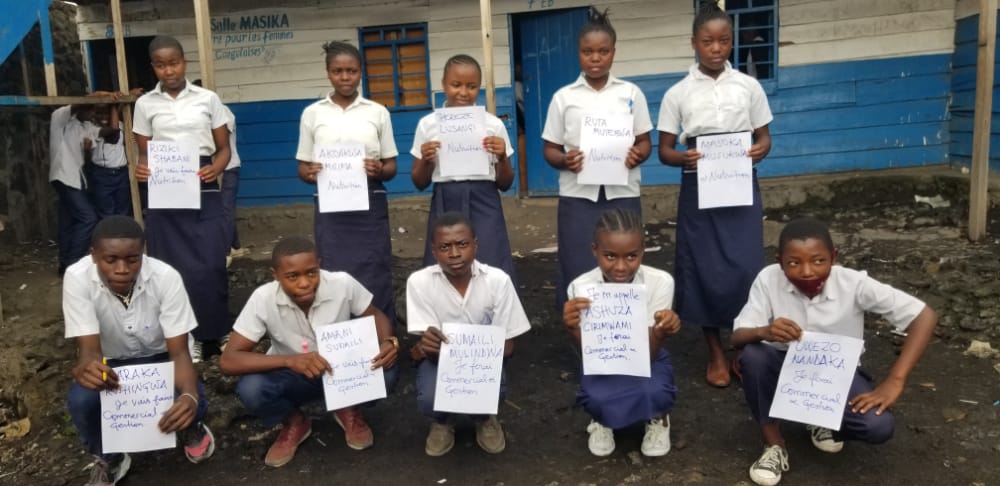 Salle MASIKA
re pour les femmes
Congolaises
RIZIKI
SHABANI
je vais faire
Nutrition
AKSANTI
MUIMA
Nutrition
LUSANGI
Nutrition
RUTA
MUTEBWA
Nutrition
Nutrition
ARAKA
Je vais faire
Commercial
Gestion
AMANI
SUMAILI
Je vais faire
Commercial
et Gestion
SUMAILI
MULINDWA
Je ferai
Commercial et
Gestion
Je m'appelle
ASHUZA
CIRIMWAMI
Je ferai
Commercial et
Gestion
NANDAKA
Je ferai
Commercial
et Gestion